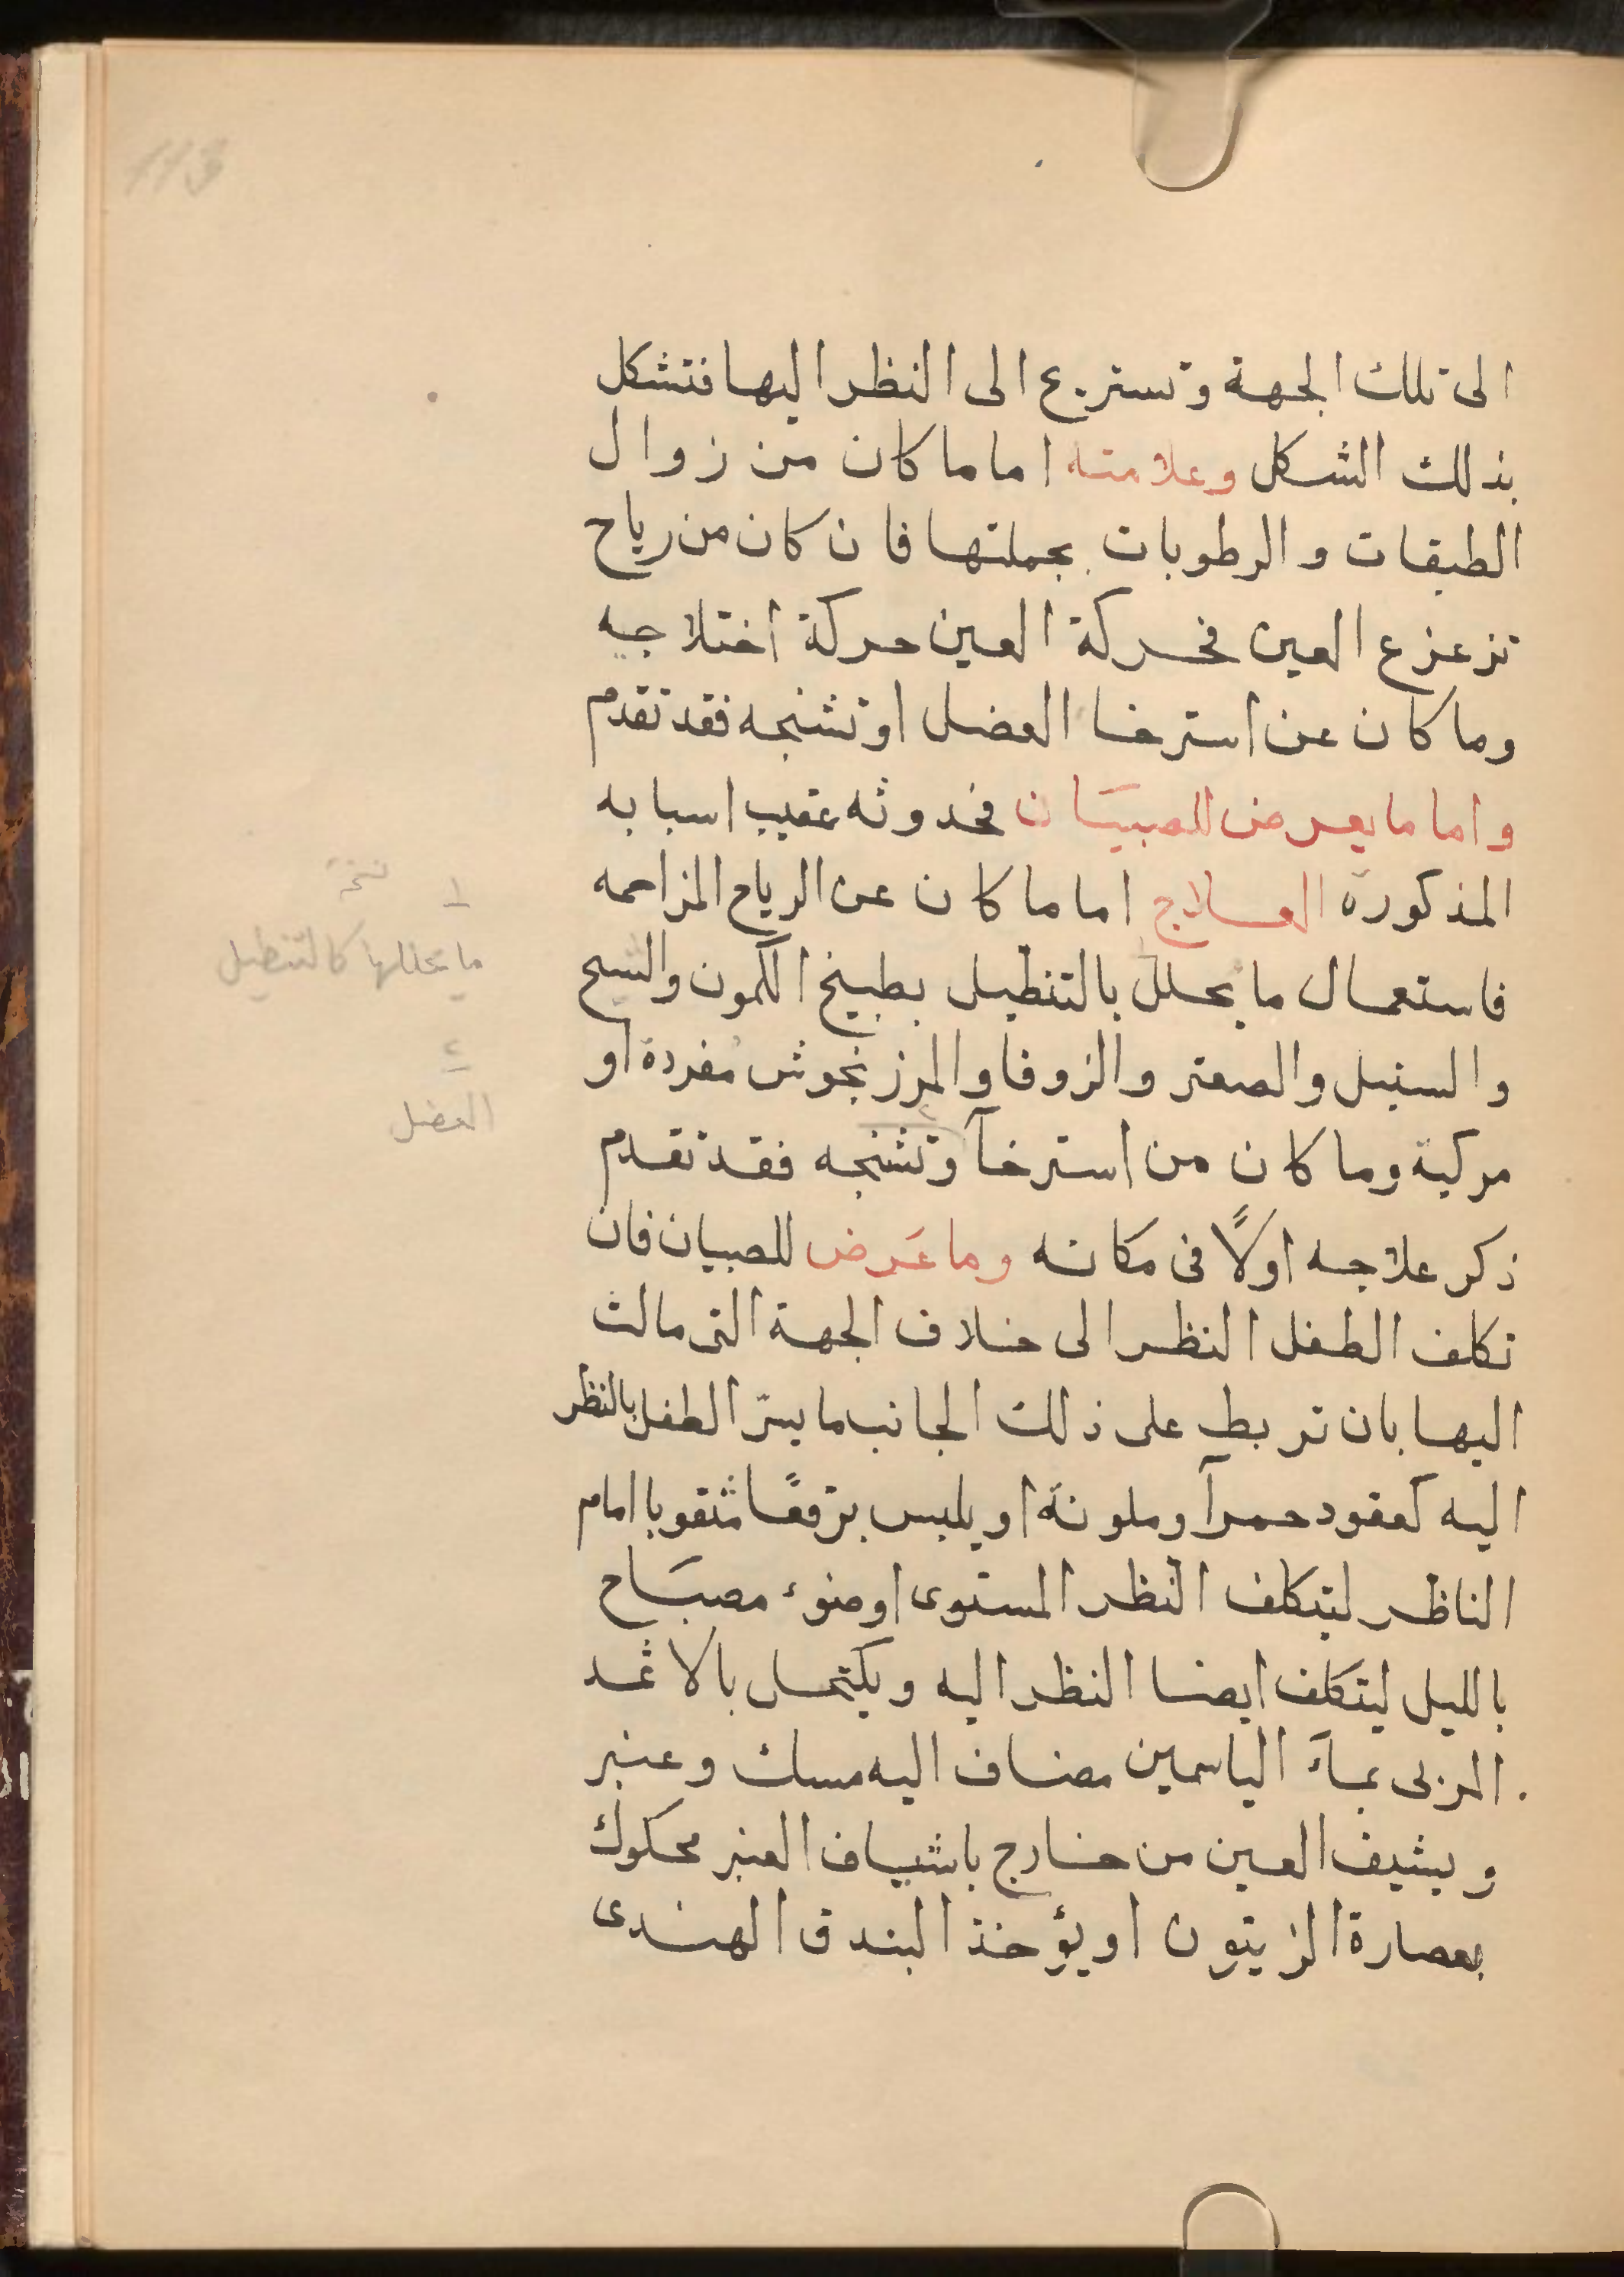 113
الى تلك الجهة وتستريح الى النظر اليها فتشكل
بذلك الشكل وعلامته اما ما كان من زوال
الطبقات والرطوبات بجملتها فان كان من رياح
تزعزع العين فحركة العين حركة اختلاجيه
وما كان عن استرخا العضل او تشنجه فقد تقدم
واما ما يعرض للصبيَان فحدوثه عقيب اسبابه
المذكورة العلاج اما ما كان عن الرياح المزاحمه
فاستعمال ما يحلل بالتنطيل بطبيخ الكمون والشيح
والسنبل والصعتر والزوفا والمرزنجوش مفردة او
مركبة وما كان من استرخآ وتشنجه فقد تقدم
ذكر علاجه اولًا فى مكانه وما عَرض للصبيان فان
تكلف الطفل النظر الى خلاف الجهة التى مالت
اليها بان تربط على ذلك الجانب ما يسرّ الطفل بالنظر
اليه كعقود حمرآ وملونة او يلبس برقعًا مثقوبا امام
الناظر ليتكلف النظر المستوى او ضوء مصبَاح
بالليل ليتكلف ايضا النظر اليه ويكتحل بالاثمد
المربى بمآَ الياسمين مضاف اليه مسك وعنبر
ويشيف العين من خارج باشياف العنبر محكوك
بعصارة الزيتون او يؤخذ البندق الهندى
١ نسخة
ما يحللها كالتنطيل
٢
العضل